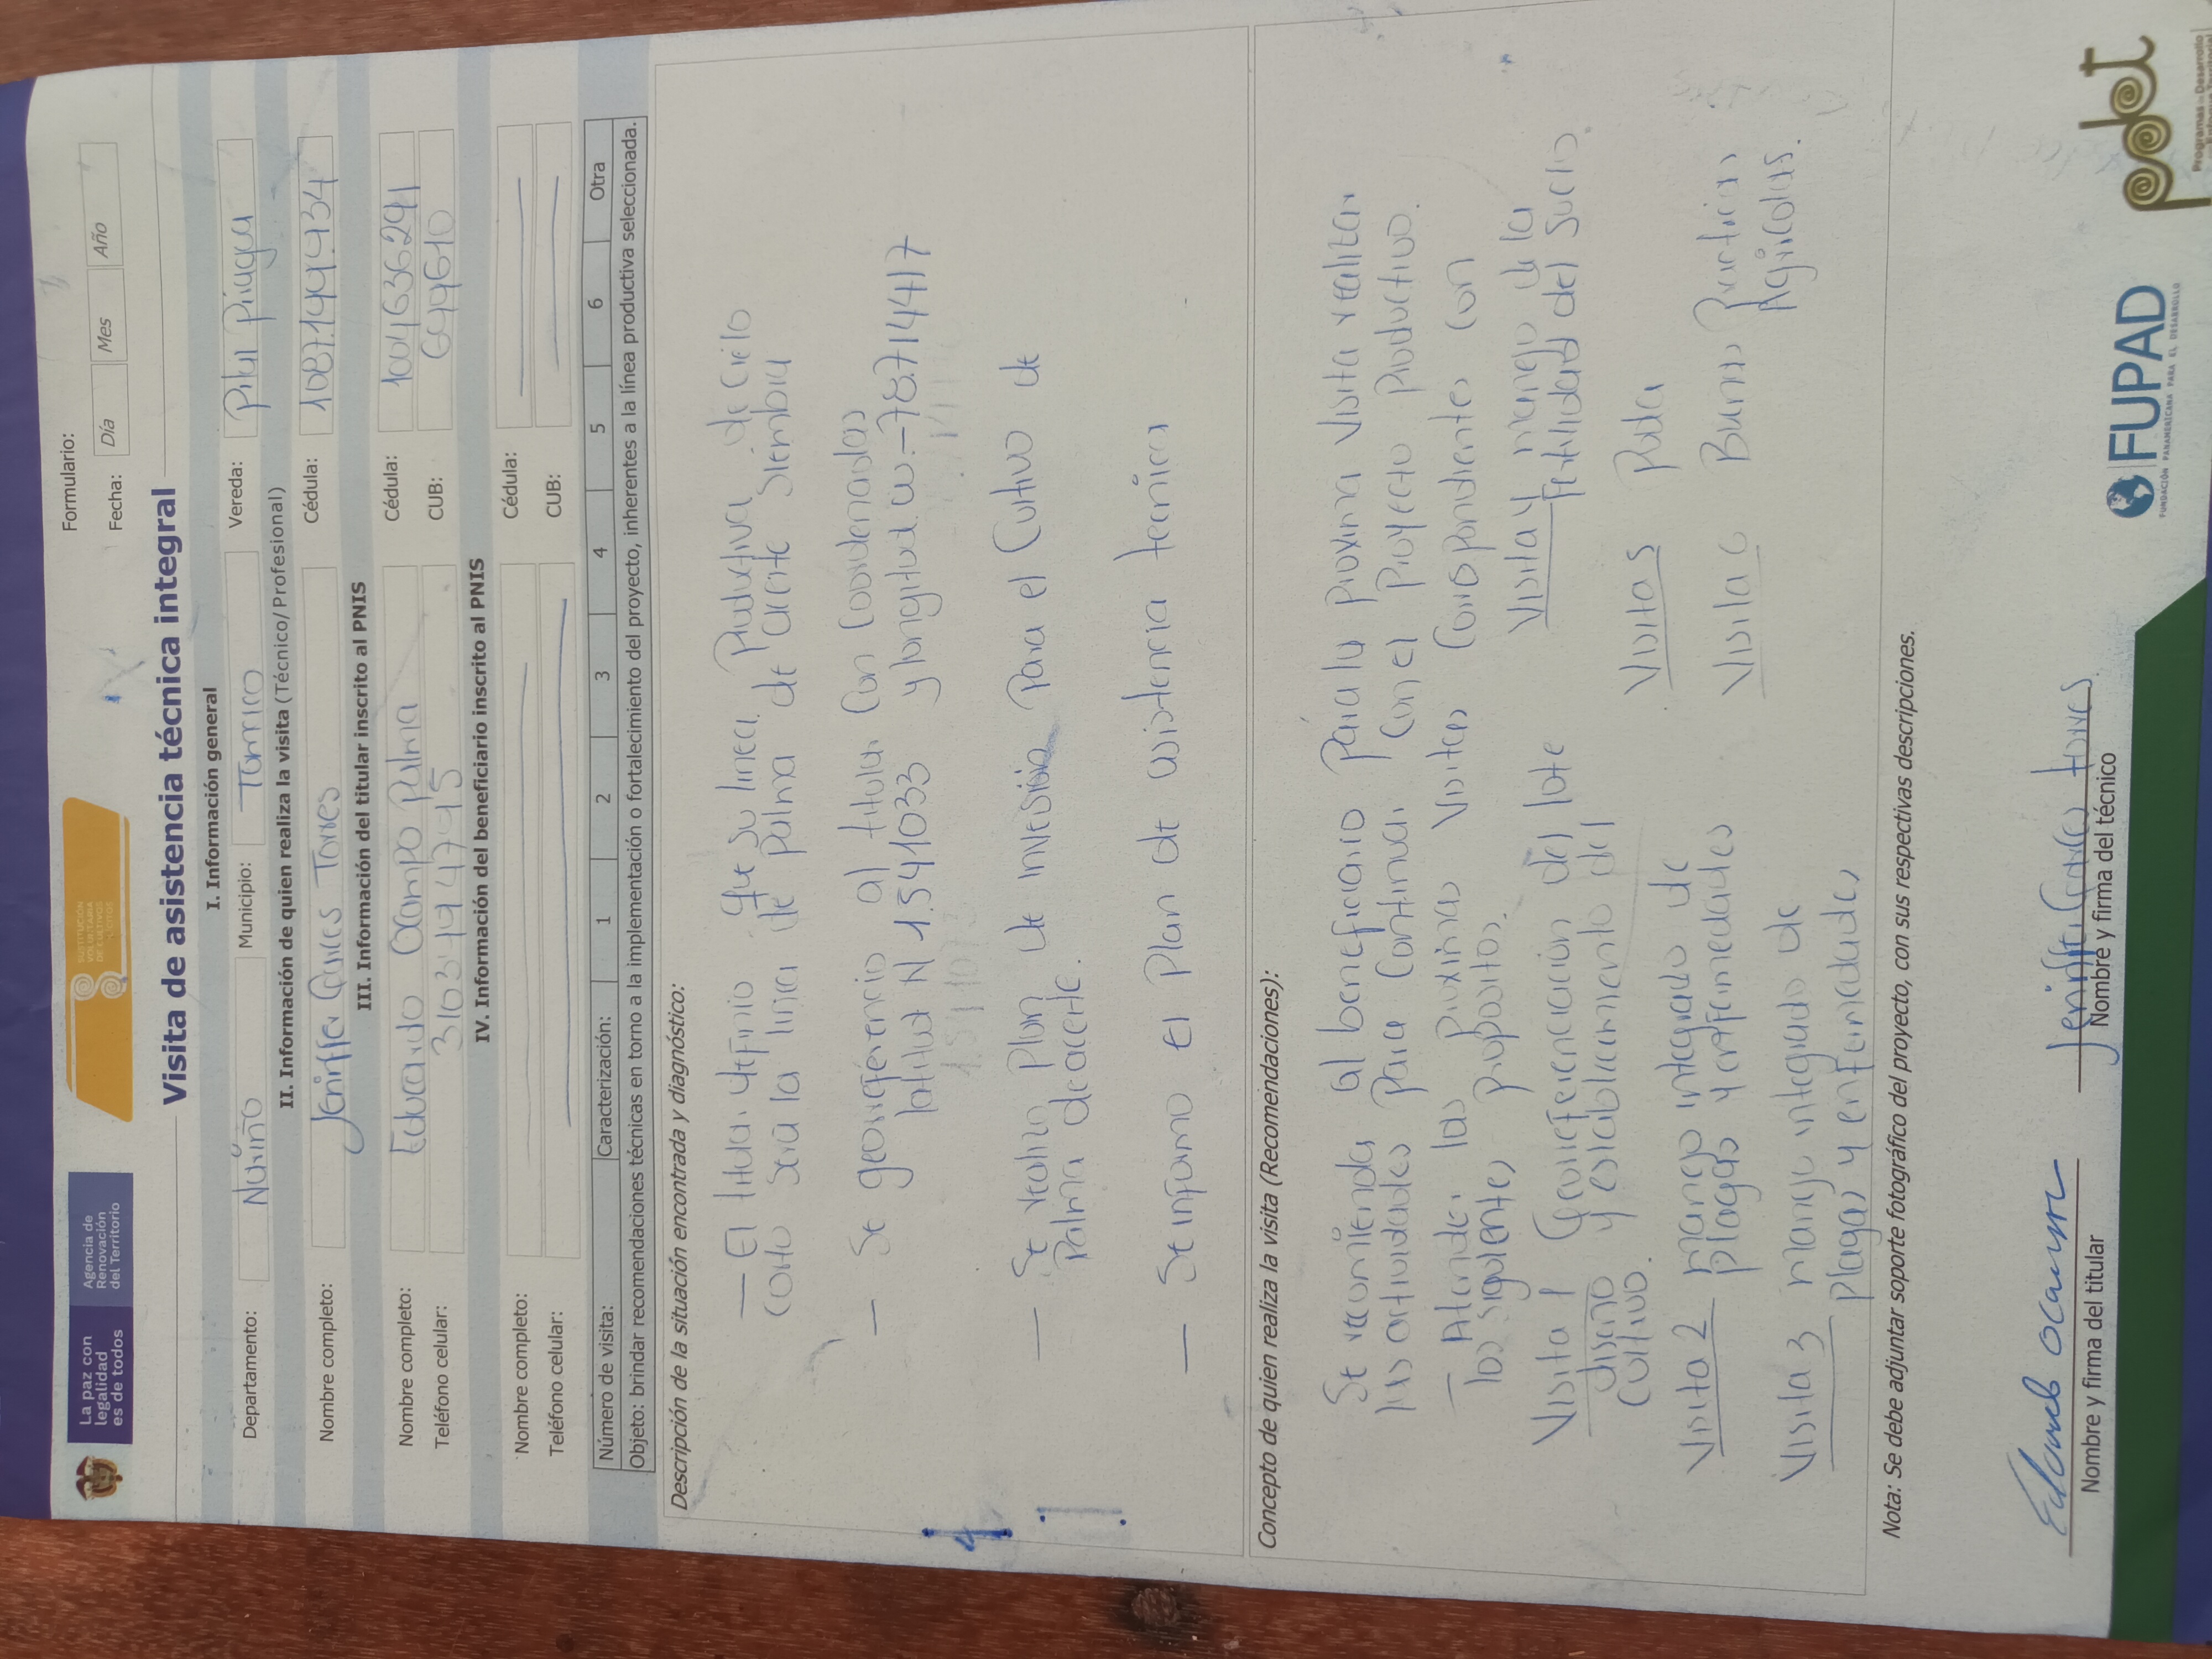 La paz con
legalidad
es de todos
Agencia de
Renovación
del Territorio
SUSTITUCIÓN
VOLUNTARIA
DE CULTIVOS
ILÍCITOS
Formulario:
Fecha: Día Mes Año
Visita de asistencia técnica integral
I. Información general
Departamento: Nariño Municipio: Tumaco Vereda: Pital Piragua
II. Información de quien realiza la visita (Técnico/Profesional)
Nombre completo: Jeniffer Garces Torres Cédula: 1087.149.934
III. Información del titular inscrito al PNIS
Nombre completo: Eduardo Ocampo Palma Cédula: 1004636291
Teléfono celular: 3163194795 CUB:
IV. Información del beneficiario inscrito al PNIS
Nombre completo: Cédula:
Teléfono celular: CUB:
Número de visita: Caracterización: 1 2 3 4 5 6 Otra
Objeto: brindar recomendaciones técnicas en torno a la implementación o fortalecimiento del proyecto, inherentes a la línea productiva seleccionada.
Descripción de la situación encontrada y diagnóstico:
— El titular definio que su linea Productiva de ciclo
corto sera la linea de palma de aceite siembra
— Se georreferencio al titular con coordenadas
latitud N 1.541033 y longitud w.-78.714417
— Se realizo plan de inversion para el cultivo de
Palma de aceite.
— Se informo el plan de asistencia tecnica
Concepto de quien realiza la visita (Recomendaciones):
Se recomienda al beneficiario para la proxima visita realizar
las actividades para continuar con el proyecto productivo.
— Atender las proximas visitas correspondientes con
los siguientes propositos.
Visita 1 Georreferenciación del lote
diseño y establecimiento del
cultivo.
Visita 2 manejo integrado de
plagas y enfermedades
Visita 3 manejo integrado de
plagas y enfermedades
Visita 4 manejo de la
fertilidad del suelo.
Visita 5 Poda
Visita 6 Buenas Practicas
Agricolas.
Nota: Se debe adjuntar soporte fotográfico del proyecto, con sus respectivas descripciones.
Eduardo Ocampo
Nombre y firma del titular
Jeniffer Garces torres
Nombre y firma del técnico
FUPAD
FUNDACIÓN PANAMERICANA PARA EL DESARROLLO
pdet
Programas de Desarrollo